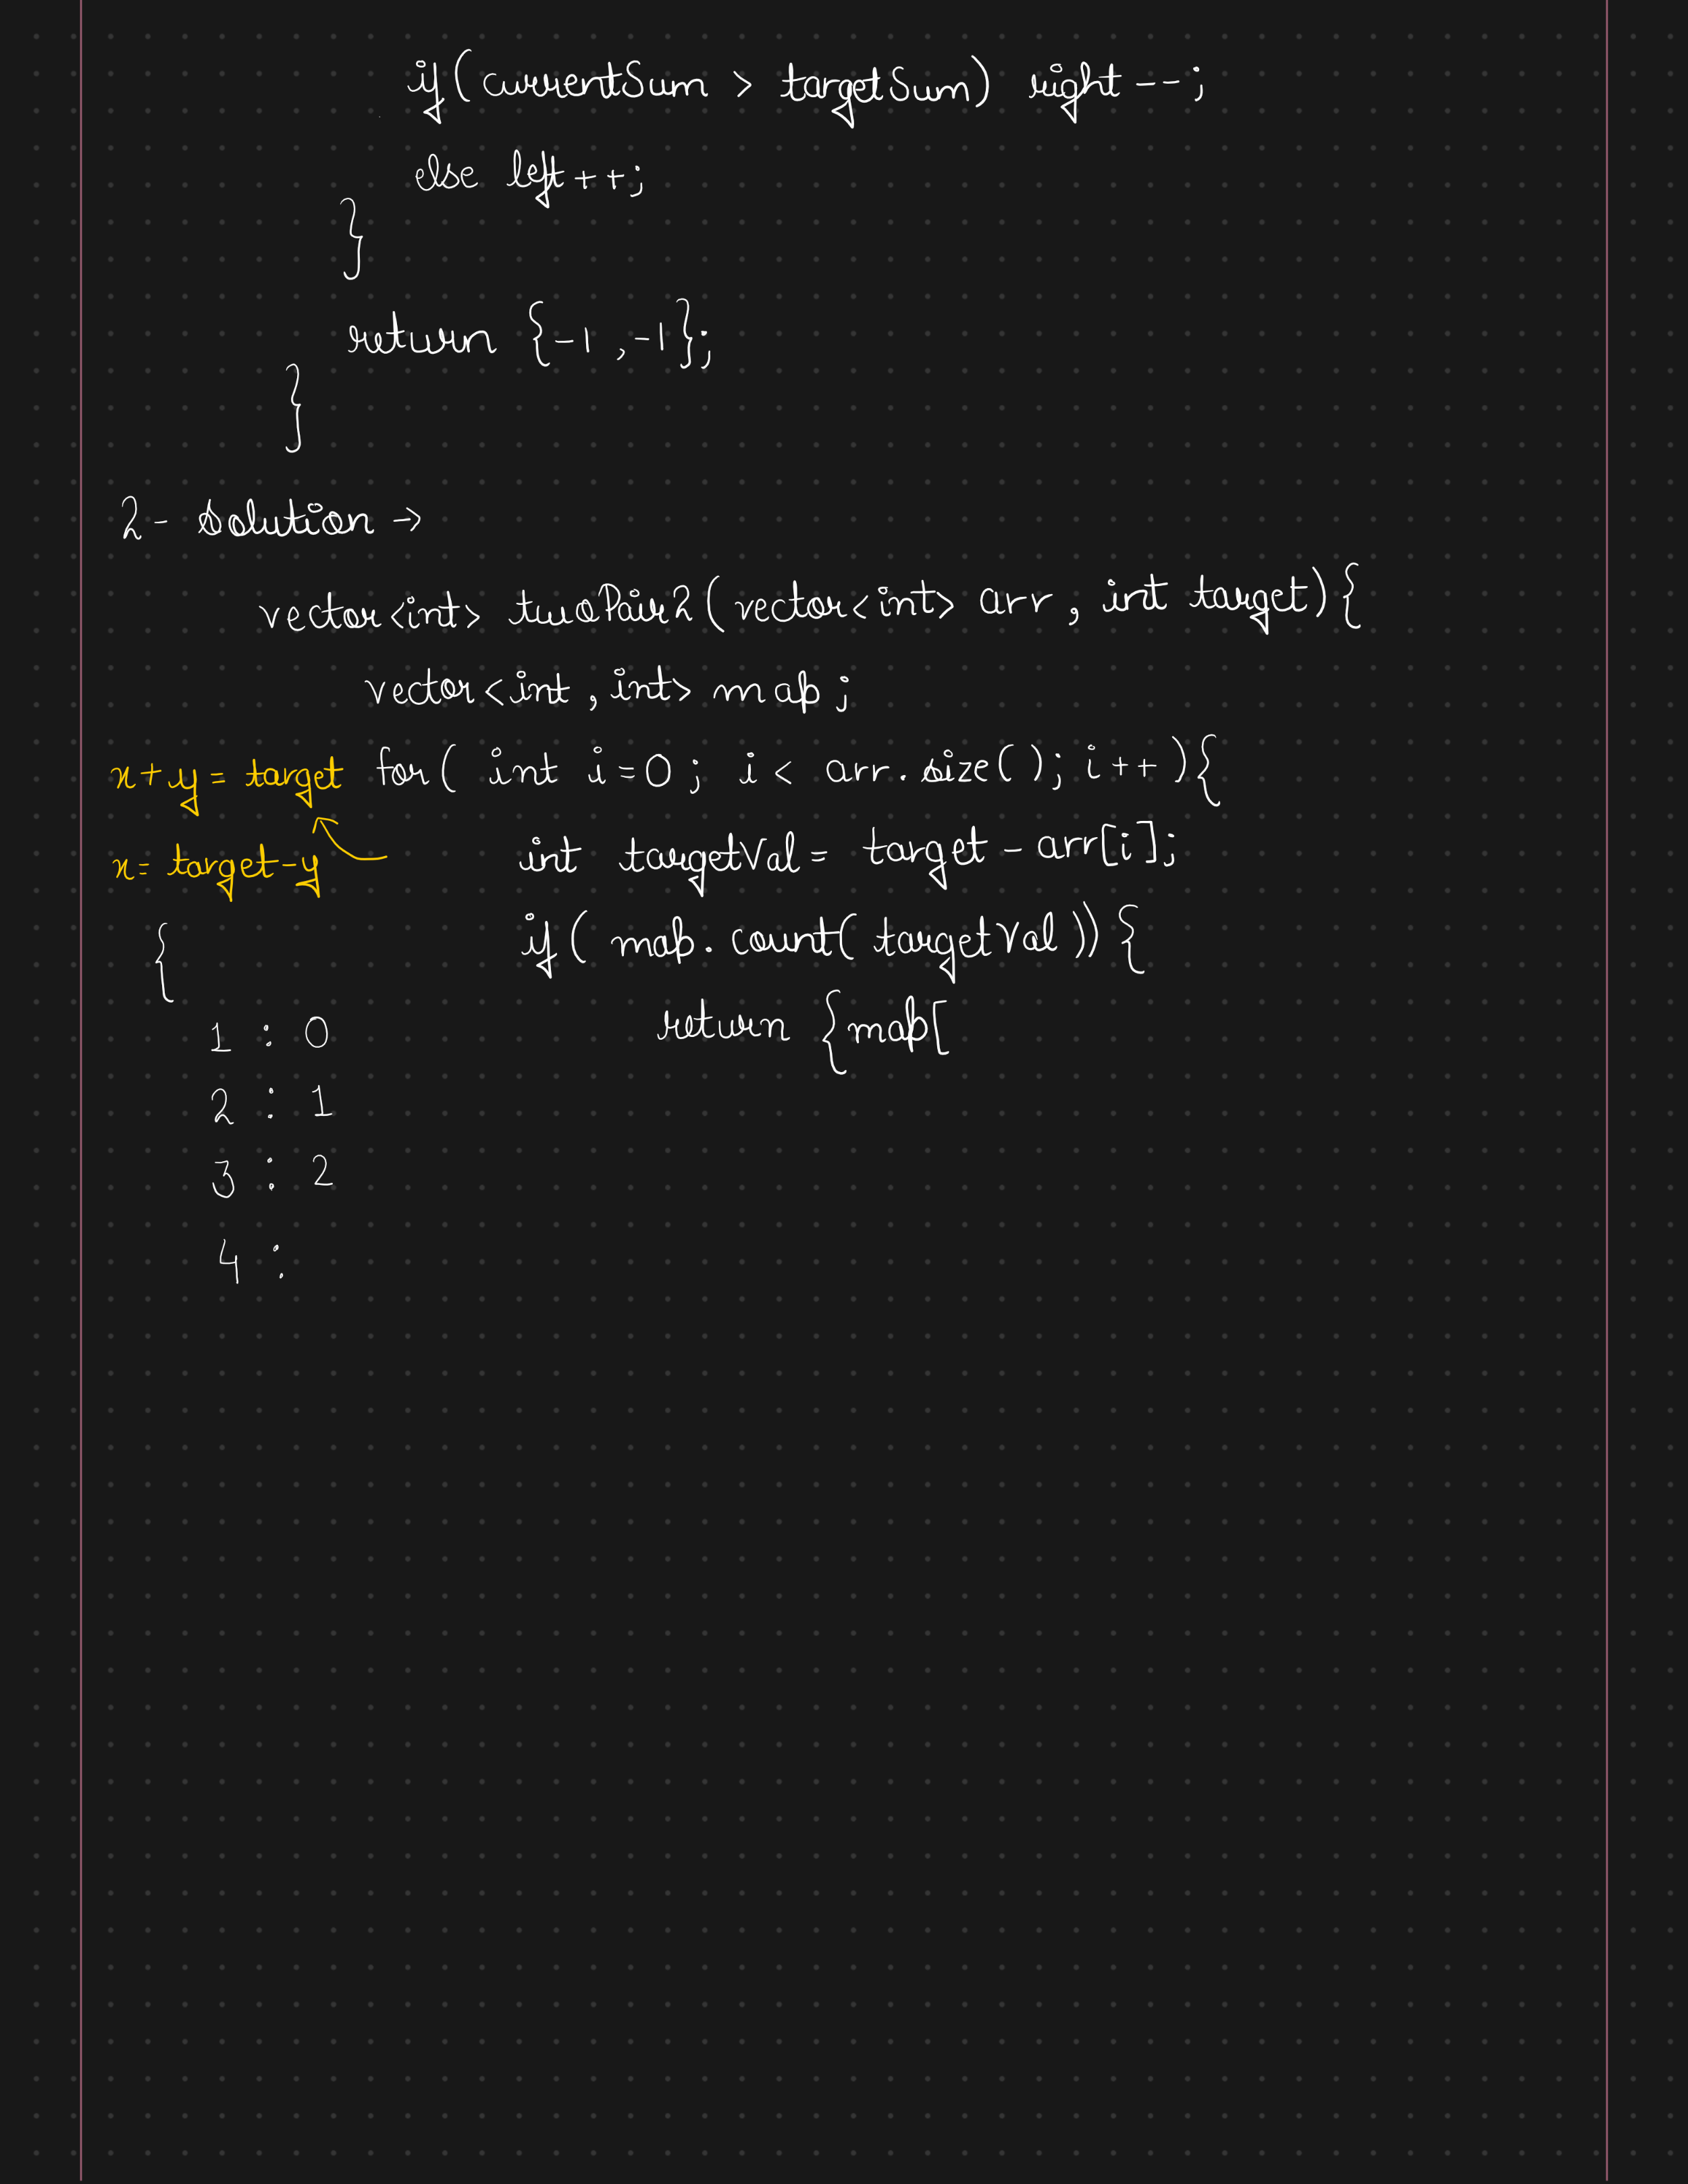 if(currentSum > targetSum) right--;
else left++;
}
return {-1,-1};
}
2- Solution →
vector<int> twoPair2(vector<int> arr, int target){
vector<int, int> map;
x+y = target for( int i=0; i< arr.size(); i++){
x= target-y int targetVal= target - arr[i];
{ if( map.count( targetVal)){
1 : 0 return {map[
2 : 1
3 : 2
4 :